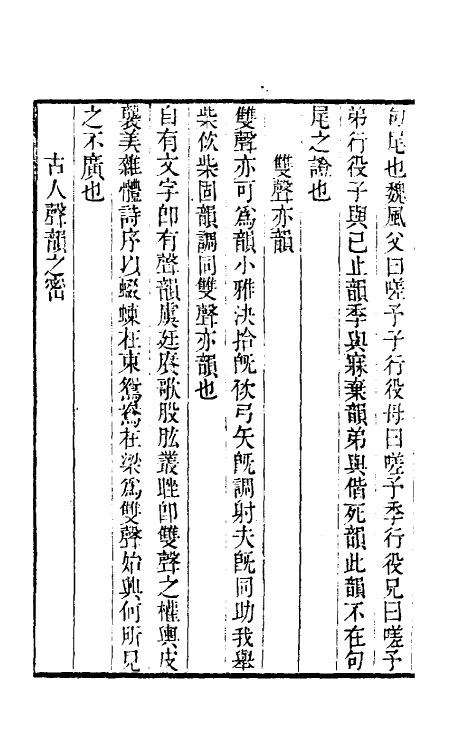 句尾也魏風父曰嗟予子行役母曰嗟予季行役兄曰嗟予
弟行役子與已止韻季與寐棄韻弟與偕死韻此韻不在句
尾之證也
雙聲亦韻
雙聲亦可爲韻小雅決拾旣佽弓矢旣調射夫旣同助我舉
柴佽柴固韻調同雙聲亦韻也
自有文字卽有聲韻虞廷賡歌股肱叢脞卽雙聲之權輿皮
襲美雜體詩序以蝃蝀在東鴛鴦在梁爲雙聲始興何所見
之不廣也
古人聲韻之密